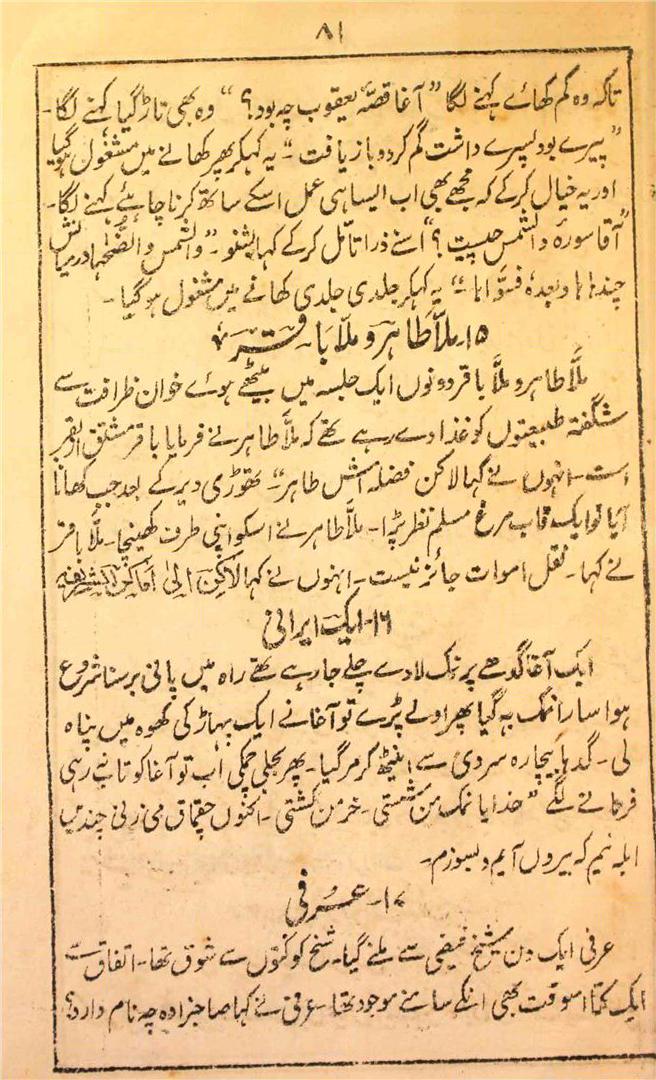 ۸۱
تاکہ وہ کم کھائے کہنے لگا "آغا قصّہ یعقوب چہ بود؟" وہ بھی تاڑ گیا کہنے لگا۔
"پیرے بود پسرے داشت گم کرد و باز یافت۔" یہ کہکر پھر کھانے میں مشغول ہو گیا
اور یہ خیال کر کے کہ مجھے بھی اب ایسا ہی عمل اسکے ساتھ کرنا چاہئے کہنے لگا۔
"آقا سورہ والشمس چیست؟" اسنے ذرا تامّل کر کے کہا بشنو۔ "والشمس والضُّحٰہا درمیانش
چند اہا و بعدہٗ فسوّاہا۔" یہ کہکر جلدی جلدی کھانے میں مشغول ہو گیا۔
۱۵۔ ملّا طاہر و ملّا باقر
ملّا طاہر و ملّا باقر دونوں ایک جلسہ میں بیٹھے ہوئے خوان ظرافت سے
شگفتہ طبیعتوں کو غذا دے رہے تھے کہ ملّا طاہر نے فرمایا باقر مشتق از بقر
است۔ انہوں نے کہا لاکن فضلہ اش طاہر۔" تھوڑی دیر کے بعد جب کھانا
آیا تو ایک قاب مرغ مسلم نظر پڑا۔ ملّا طاہر نے اسکو اپنی طرف کھینچا۔ ملّا باقر
نے کہا۔ نقل اموات جائز نیست۔ انہوں نے کہا لاکن الیٰ اماکن الشریفہ
۱۶۔ ایک ایرانی
ایک آغا گدھے پر نمک لادے چلے جا رہے تھے راہ میں پانی برسنا شروع
ہوا سارا نمک بہ گیا پھر اولے پڑے تو آغا نے ایک پہاڑ کی کھوہ میں پناہ
لی۔ گدہا بیچارہ سردی سے اینٹھ کر مر گیا۔ پھر بجلی چمکی اب تو آغا کو تاب نہ رہی
فرمانے لگے "خدایا نمک من شستی۔ خر من کشتی۔ اکنوں چقماق می زنی چندیں
ابلہ نیم کہ بیروں آیم و بسوزم۔
۱۷۔ عرفی
عرفی ایک دن شیخ فیضی سے ملنے گیا۔ شیخ کو کتوں سے شوق تھا۔ اتفاق سے
ایک کتا اسوقت بھی انکے سامنے موجود تھا۔ عرفی نے کہا صاحبزادہ چہ نام دارد؟